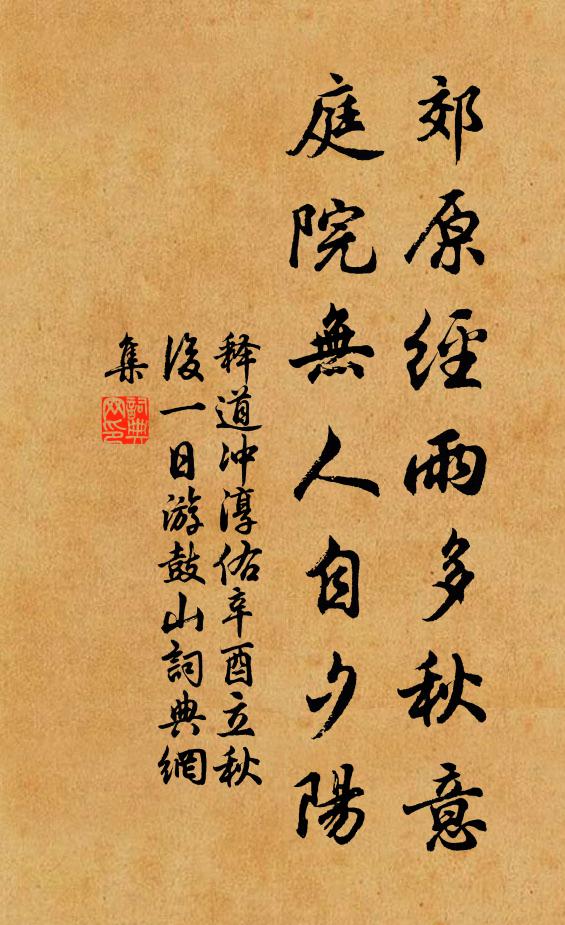 郊原經雨多秋意
庭院無人自夕陽
释道冲淳佑辛酉立秋
後一日游鼓山詞典網
集
詞典網印